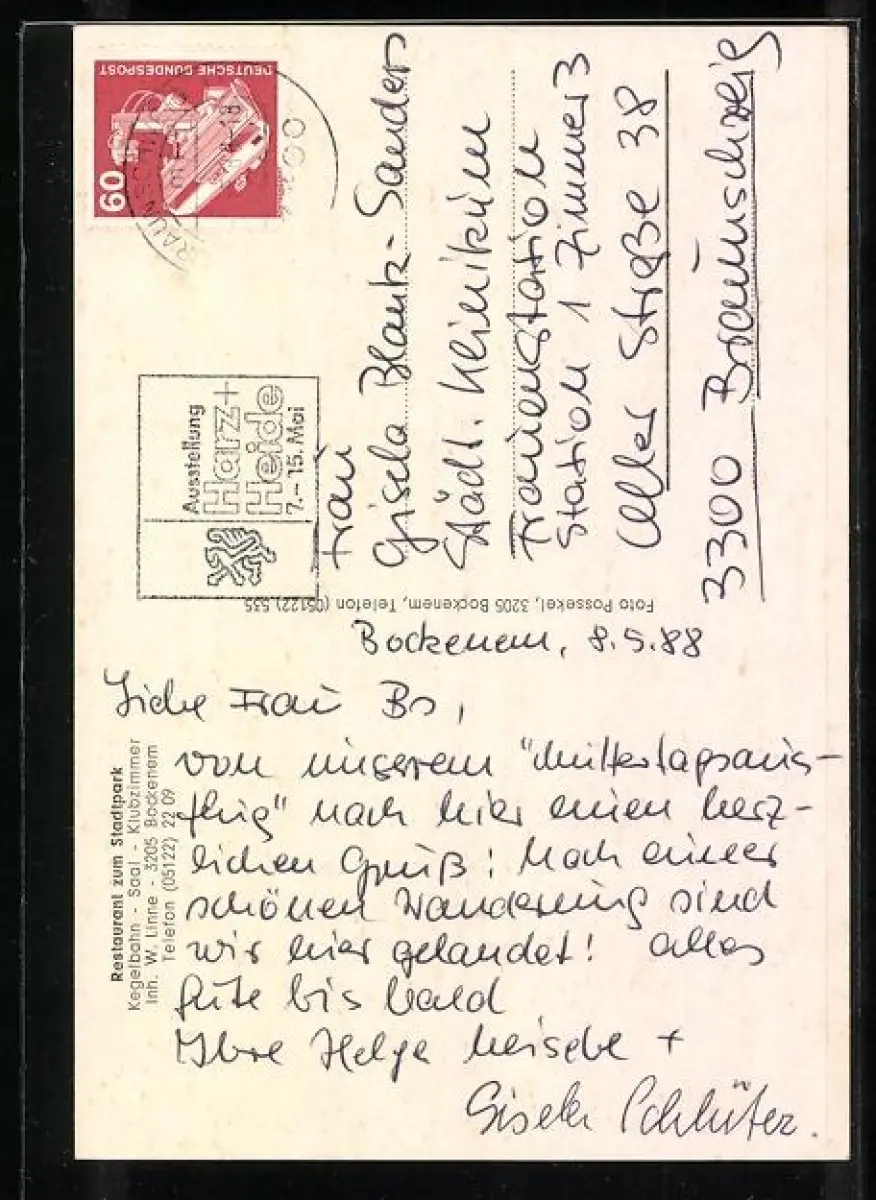 DEUTSCHE BUNDESPOST
60
Ausstellung
Harz+
Heide
7.–15. Mai
Frau
Gisela Blank-Sander
Städt. Klinikum
Frauenstation
Station 1 Zimmer 3
Celler Straße 38
3300 Braunschweig
Foto Possekel, 3205 Bockenem, Telefon (05122) 535
Restaurant zum Stadtpark
Kegelbahn - Saal - Klubzimmer
Inh. W. Linne - 3205 Bockenem
Telefon (05122) 22 09
Bockenem, 8.5.88
Liebe Frau Bs,
von unserem "Muttertagsaus-
flug" nach hier einen herz-
lichen Gruß! Nach einer
schönen Wanderung sind
wir hier gelandet! Alles
Gute bis bald
Ihre Helga +
Gisela Schlüter.